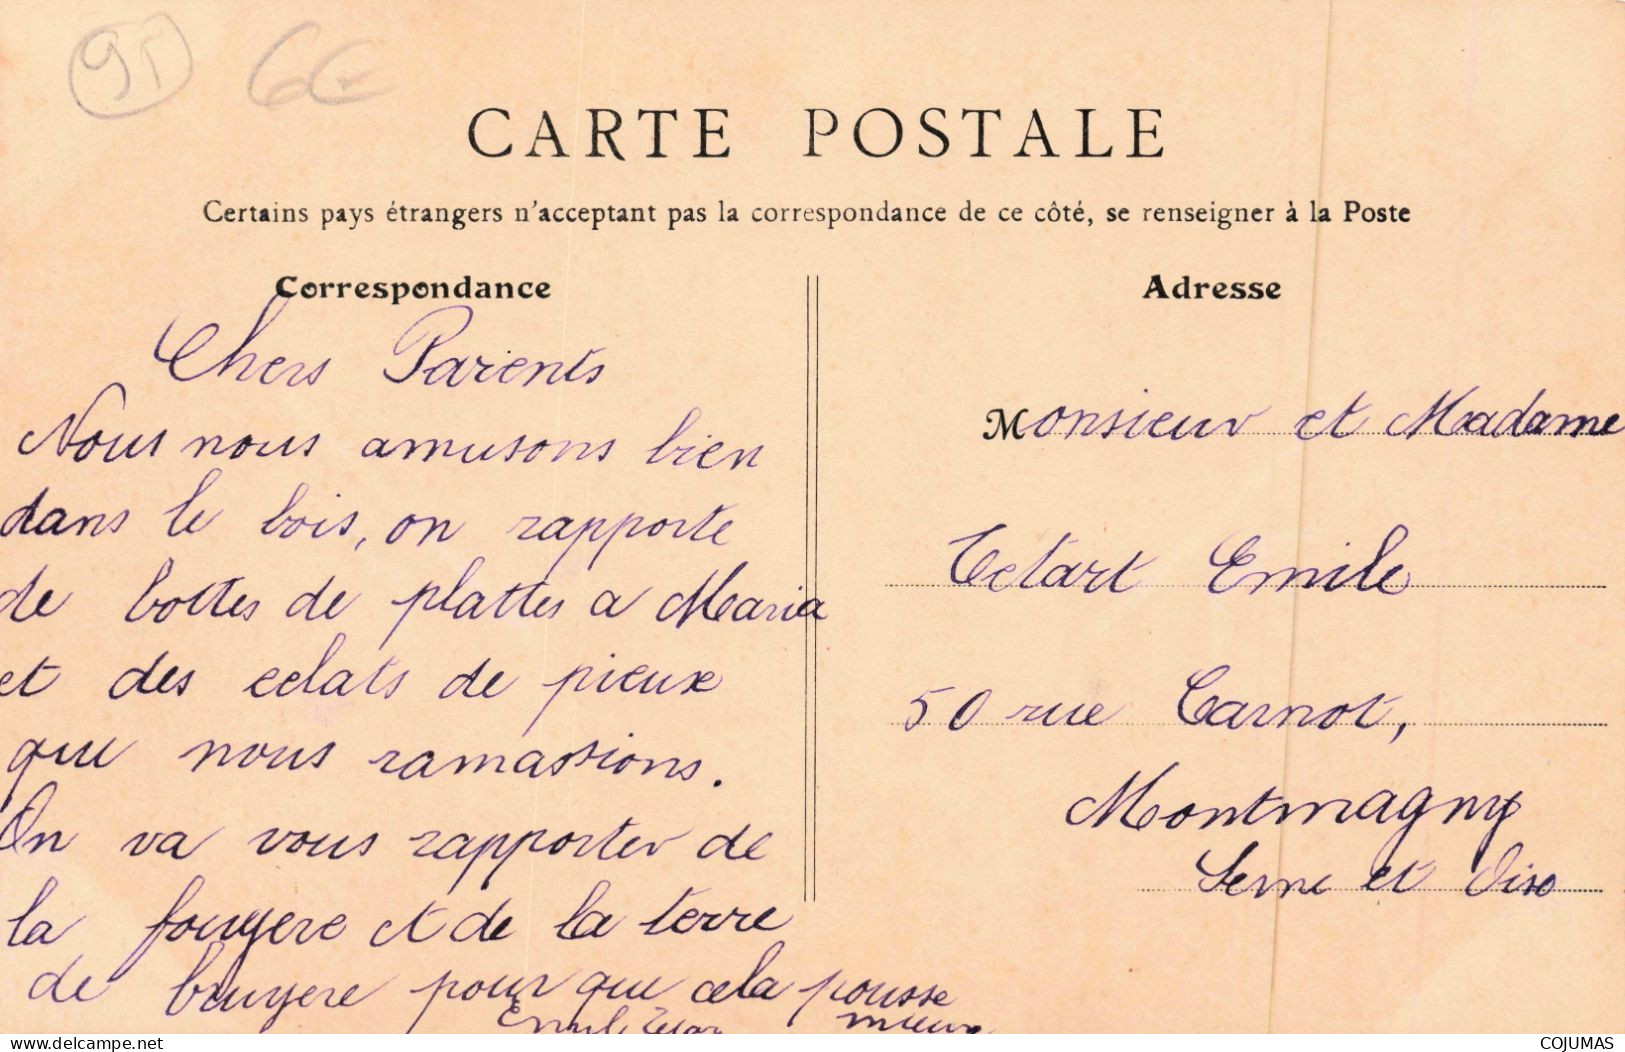 95 6€
CARTE POSTALE
Certains pays étrangers n'acceptant pas la correspondance de ce côté, se renseigner à la Poste
Correspondance
Chers Parents
Nous nous amusons bien
dans le bois, on rapporte
de bottes de plattes a Maria
et des eclats de pieux
que nous ramassions.
On va vous rapporter de
la fougere et de la terre
de bruyere pour que cela pousse
mieux
Adresse
Monsieur et Madame
Tetart Emile
50 rue Carnot,
Montmagny
Seine et Oise
www.delcampe.net
COJUMAS